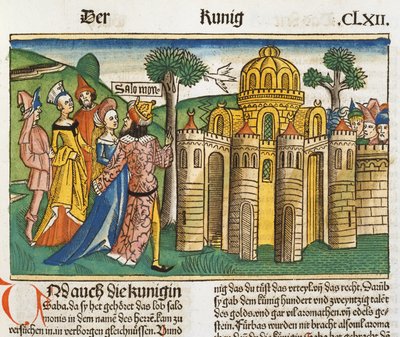 Der Kunig .CLXII.
Salomon.
UNd auch die kunigin
Saba.da sy het gehöret das lob salo
monis in dem namē des herrē.kam zu
versuchen in in verborgen gleichnussen.Vnnd
nig das du tüst das vrteyl vñ das recht.Darüb
sy gab dem künig hundert vnd zweyntzig talēt
des golds.vnd gar vil aromathen.vñ edels ge=
stein.Fürbas wurden nit bracht alsouil aroma